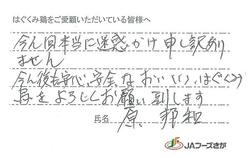 はぐくみ鶏をご愛顧いただいている皆様へ
今回本当に迷惑かけ申し訳あり
ません
今後安心、安全なおいしいはぐくみ
鳥をよろしくお願い致します
氏名 原 邦和
JAフーズさが